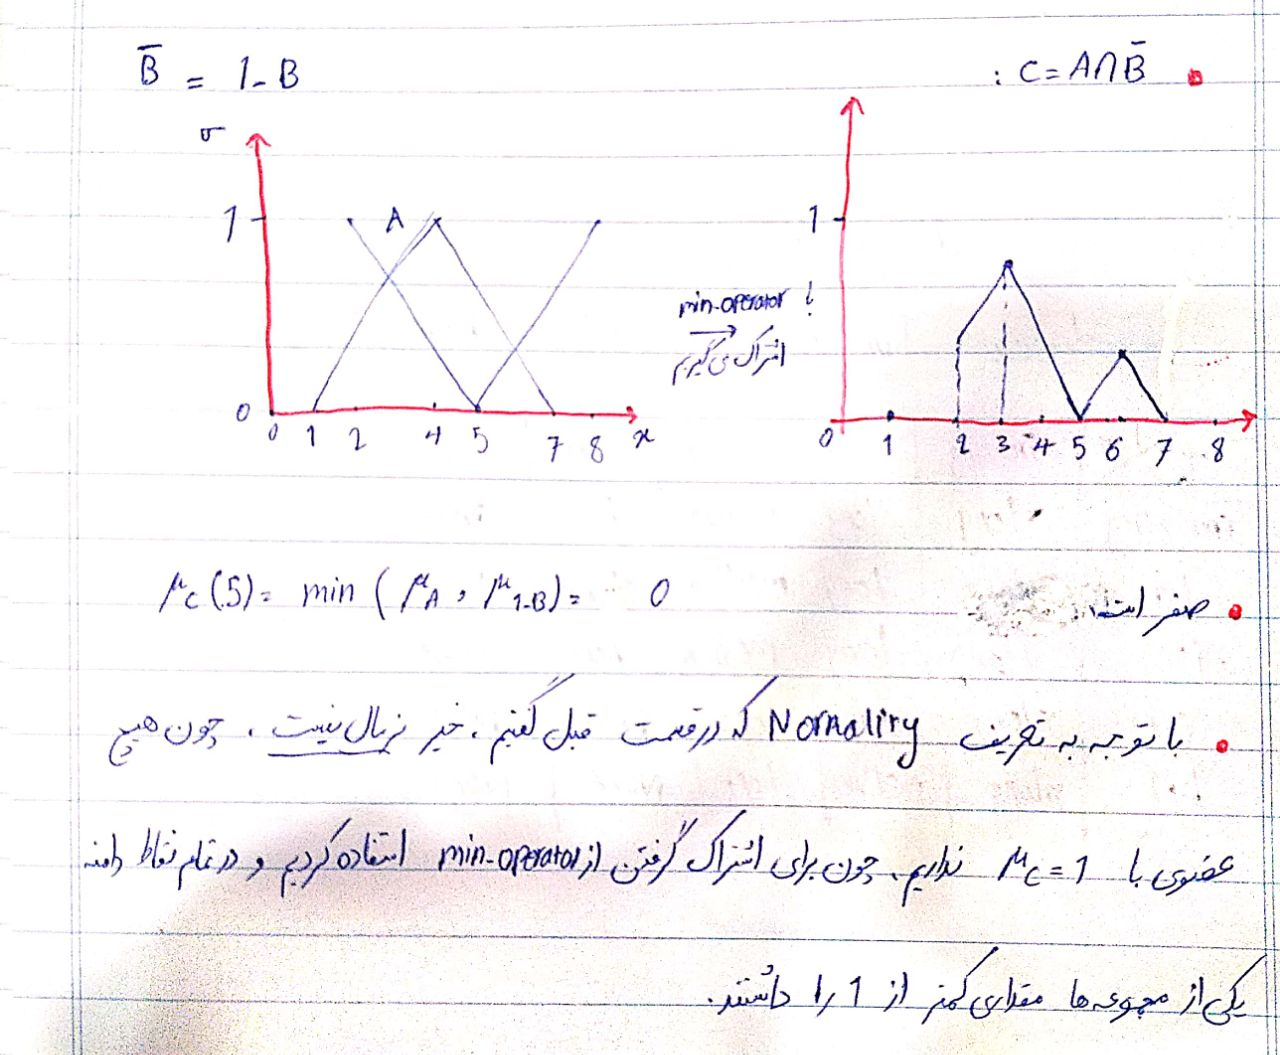 C = A∩B̄ :
B̄ = 1-B
σ
1
A
0
0 1 2 4 5 7 8 x
min-operator
اشتراک می‌گیریم
1
0 1 2 3 4 5 6 7 8
صفر است.
μc(5) = min (μA , μ1-B) = 0
با توجه به تعریف Normality که در قسمت قبل گفتیم، خیر نرمال نیست، چون هیچ
عضوی با μc=1 نداریم. چون برای اشتراک گرفتن از min-operator استفاده کردیم و در تمام نقاط دامنه
یکی از مجموعه ها مقداری کمتر از 1 را داشتند.